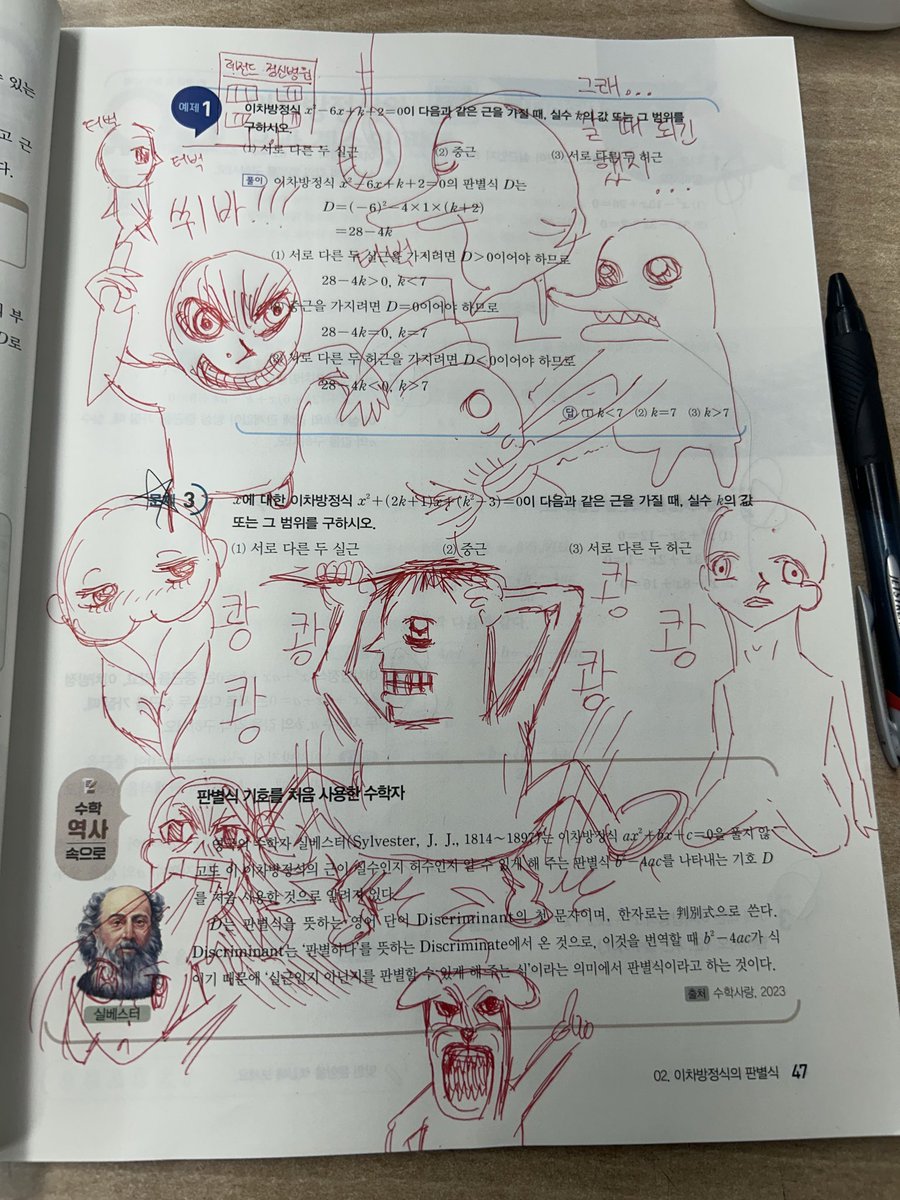 있는
고 근
다.
부
D로
레전드 정신병원
그래...
예제 1 이차방정식 x²-6x+k+2=0이 다음과 같은 근을 가질 때, 실수 k의 값 또는 그 범위를
구하시오.
갈 때 되긴
했지
...
터벅
터벅
(1) 서로 다른 두 실근 (2) 중근 (3) 서로 다른 두 허근
풀이 이차방정식 x²-6x+k+2=0의 판별식 D는
쒸바!!!!
D=(-6)²-4×1×(k+2)
=28-4k
터벅
(1) 서로 다른 두 실근을 가지려면 D>0이어야 하므로
28-4k>0, k<7
(2) 중근을 가지려면 D=0이어야 하므로
28-4k=0, k=7
(3) 서로 다른 두 허근을 가지려면 D<0이어야 하므로
28-4k<0, k>7
답 (1) k<7 (2) k=7 (3) k>7
문제 3 x에 대한 이차방정식 x²+(2k+1)x+(k²-3)=0이 다음과 같은 근을 가질 때, 실수 k의 값
또는 그 범위를 구하시오.
(1) 서로 다른 두 실근 (2) 중근 (3) 서로 다른 두 허근
쾅
쾅
쾅
쾅
쾅
쾅
수학
역사
속으로
판별식 기호를 처음 사용한 수학자
영국의 수학자 실베스터(Sylvester, J. J., 1814~1897)는 이차방정식 ax²+bx+c=0을 풀지 않
고도 이 이차방정식의 근이 실수인지 허수인지 알 수 있게 해 주는 판별식 b²-4ac를 나타내는 기호 D
를 처음 사용한 것으로 알려져 있다.
D는 판별식을 뜻하는 영어 단어 Discriminant의 첫 문자이며, 한자로는 判別式으로 쓴다.
Discriminant는 '판별하다'를 뜻하는 Discriminate에서 온 것으로, 이것을 번역할 때 b²-4ac가 식
이기 때문에 '실근인지 아닌지를 판별할 수 있게 해 주는 식'이라는 의미에서 판별식이라고 하는 것이다.
출처 수학사랑, 2023
실베스터
02. 이차방정식의 판별식 47